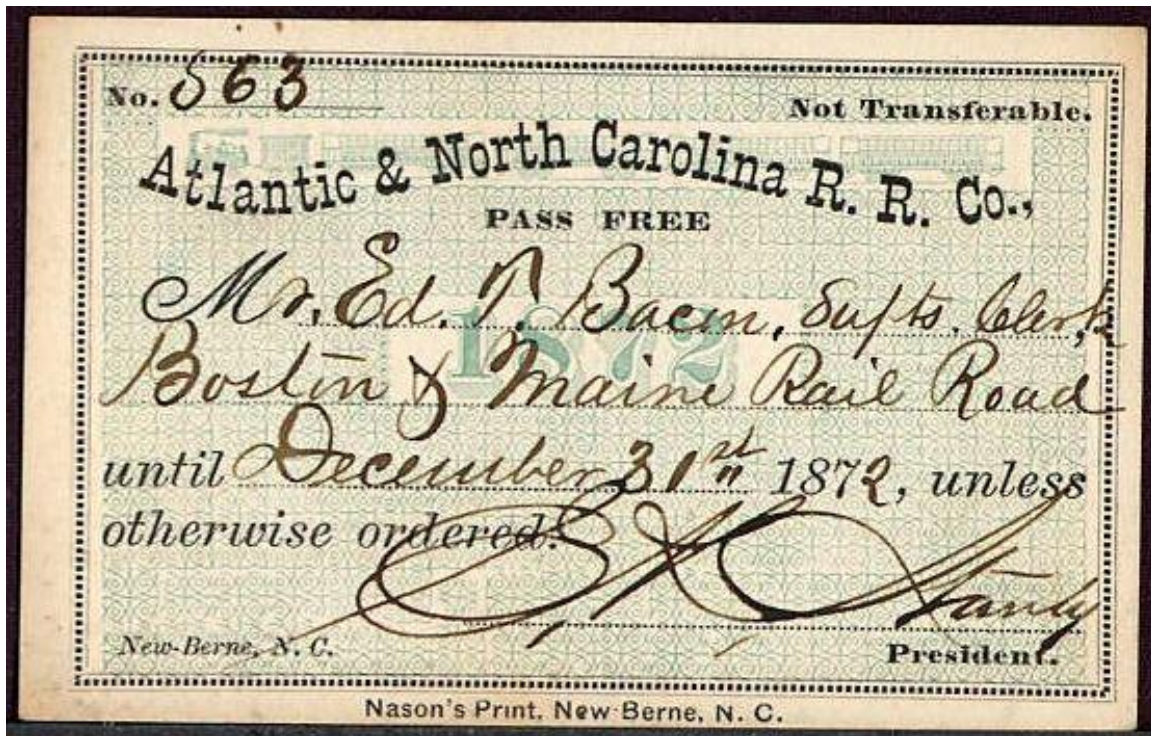 No. 563
Not Transferable.
Atlantic & North Carolina R. R. Co.,
PASS FREE
1872
Mr. Ed. T. Bacon, Supts. Clerk
Boston & Maine Rail Road
until December 31st 1872, unless
otherwise ordered.
New-Berne, N. C.
President.
Nason's Print, New Berne, N. C.